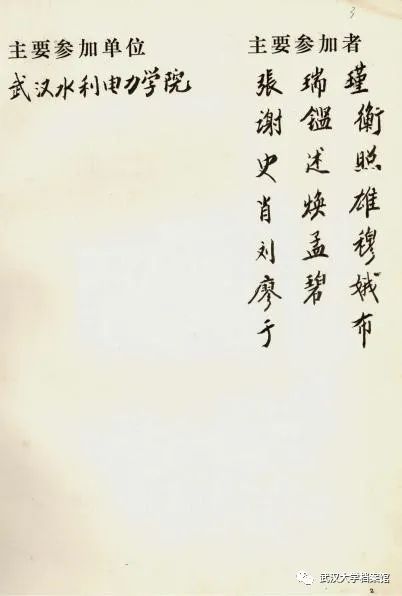 3
主要参加单位
武汉水利电力学院
主要参加者
張瑞瑾
谢鑑衡
史述照
肖焕雄
刘孟穆
廖碧娥
于布
武汉大学档案馆
2